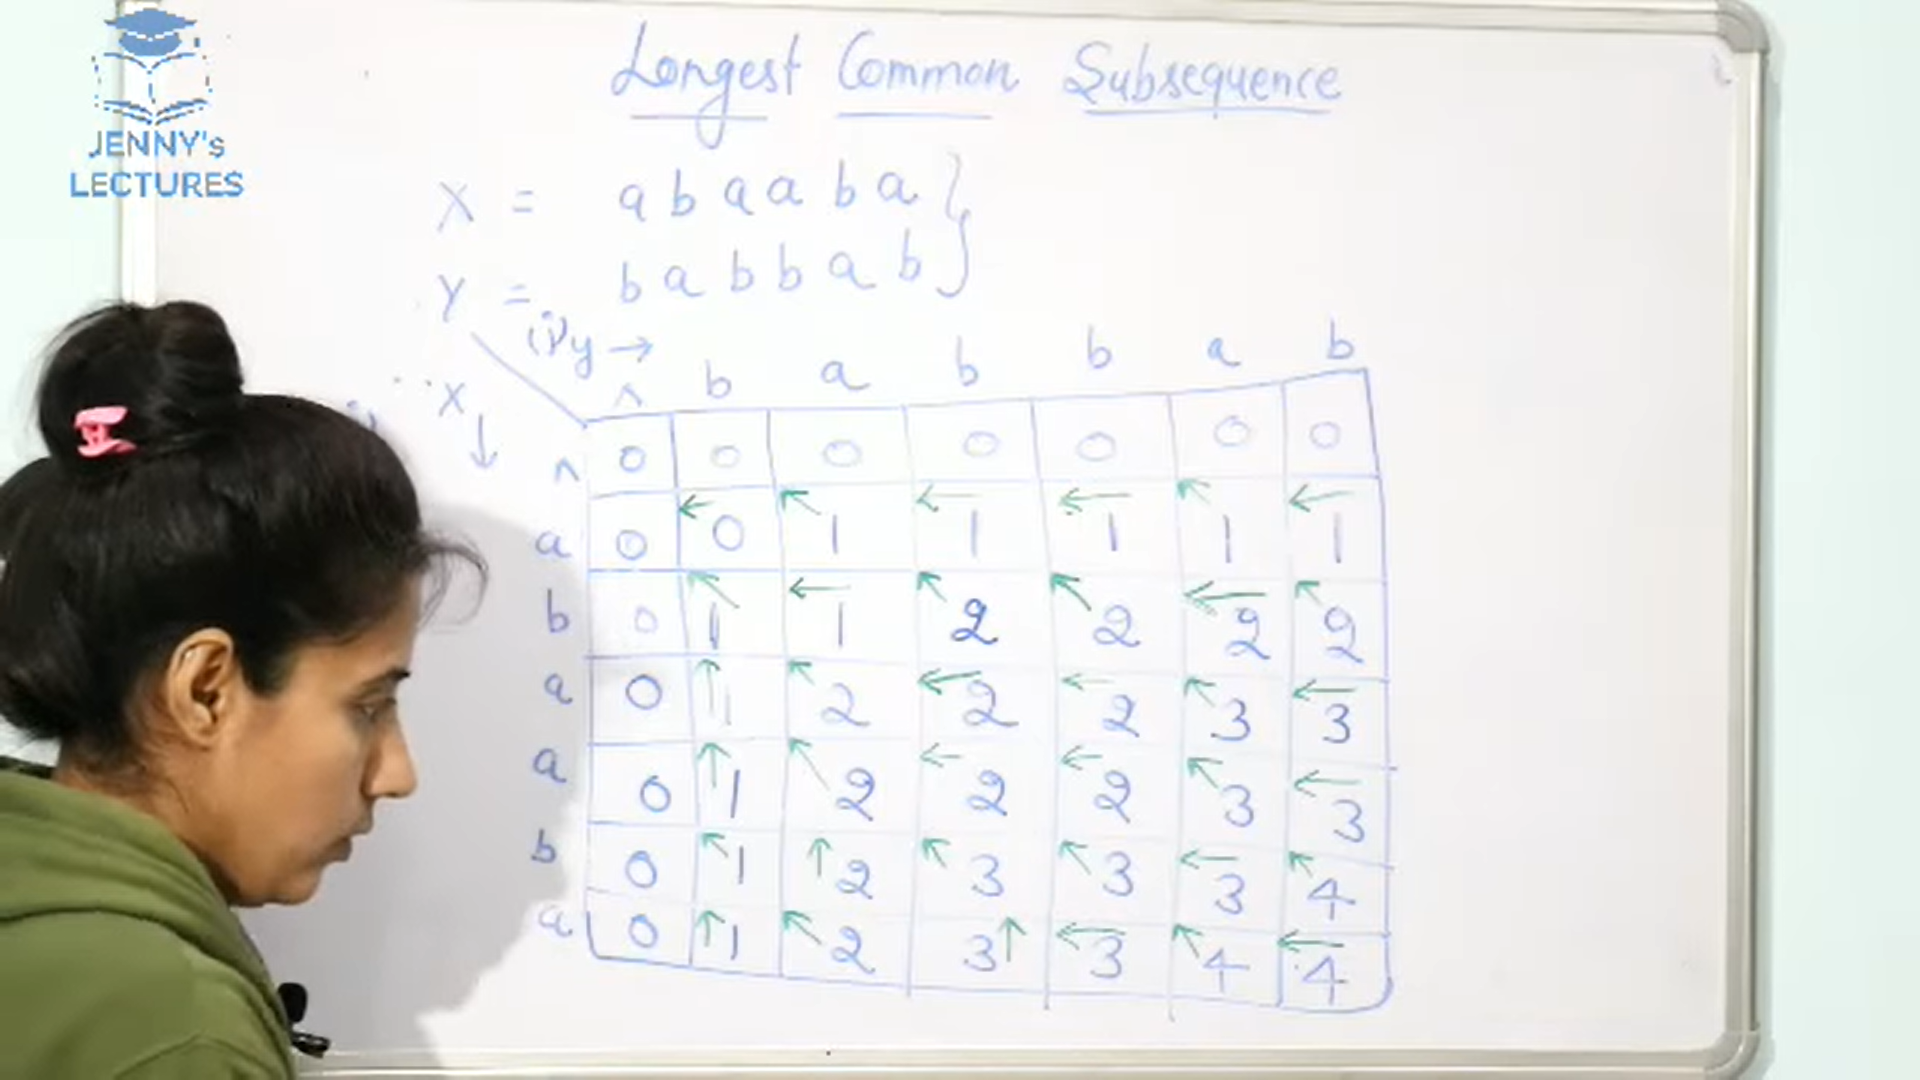 JENNY's
LECTURES
Longest Common Subsequence
X = a b a a b a }
Y = b a b b a b
y →
X ↓
^ b a b b a b
^ 0 0 0 0 0 0 0
a 0 ← 0 ↖ 1 ← 1 ← 1 ↖ 1 ← 1
b 0 ↖ 1 ← 1 ↖ 2 ↖ 2 ← 2 ↖ 2
a 0 ↑ 1 ↖ 2 ← 2 ← 2 ↖ 3 ← 3
a 0 ↑ 1 ↖ 2 ← 2 ← 2 ↖ 3 ← 3
b 0 ↖ 1 ↑ 2 ↖ 3 ↖ 3 ← 3 ↖ 4
a 0 ↑ 1 ↖ 2 3 ↑ ← 3 ↖ 4 ← 4